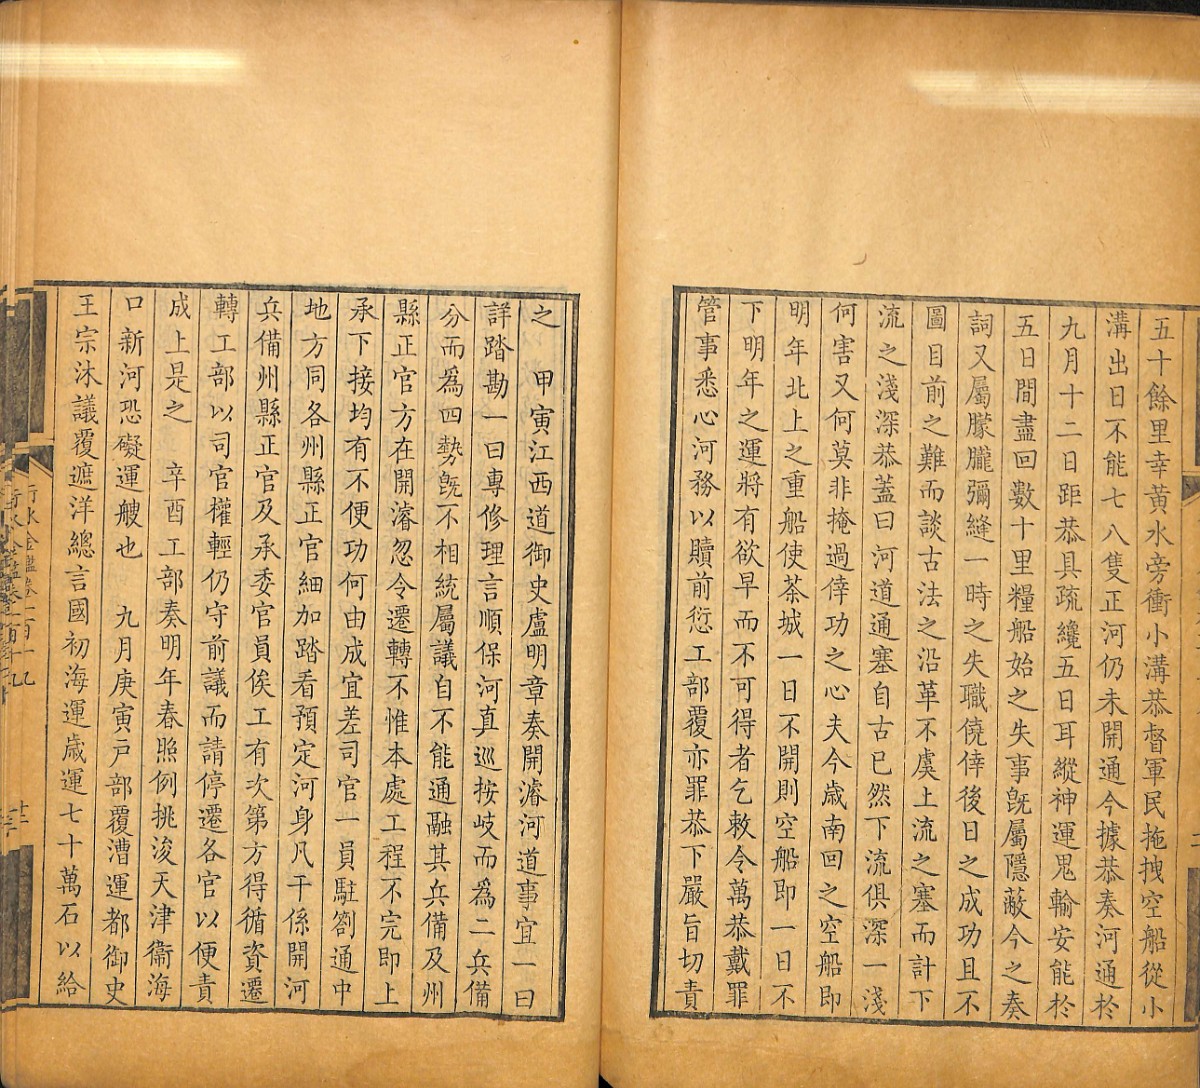 五十餘里幸黃水旁衝小溝恭督軍民拖拽空船從小
溝出日不能七八隻正河仍未開通今據恭奏河通於
九月十二日距恭具疏纔五日耳縱神運鬼輸安能於
五日間盡回數十里糧船始之失事旣屬隱蔽今之奏
詞又屬朦朧彌縫一時之失職僥倖後日之成功且不
圖目前之難而談古法之沿革不虞上流之塞而計下
流之淺深恭蓋曰河道通塞自古已然下流俱深一淺
何害又何莫非掩過倖功之心夫今歲南回之空船即
明年北上之重船使茶城一日不開則空船即一日不
下明年之運將有欲早而不可得者乞敕令萬恭戴罪
管事悉心河務以贖前愆工部覆亦罪恭下嚴旨切責
之　甲寅江西道御史盧明章奏開濬河道事宜一曰
詳踏勘一曰專修理言順保河眞巡按歧而爲二兵備
分而爲四勢旣不相統屬議自不能通融其兵備及州
縣正官方在開濬忽令遷轉不惟本處工程不完即上
承下接均有不便功何由成宜差司官一員駐劄通中
地方同各州縣正官細加踏看預定河身凡干係開河
兵備州縣正官及承委官員俟工有次第方得循資遷
轉工部以司官權輕仍守前議而請停遷各官以便責
成上是之　辛酉工部奏明年春照例挑浚天津衞海
口新河恐礙運艘也　九月庚寅戸部覆漕運都御史
王宗沐議覆遮洋總言國初海運歲運七十萬石以給
行水金鑑卷一百十九